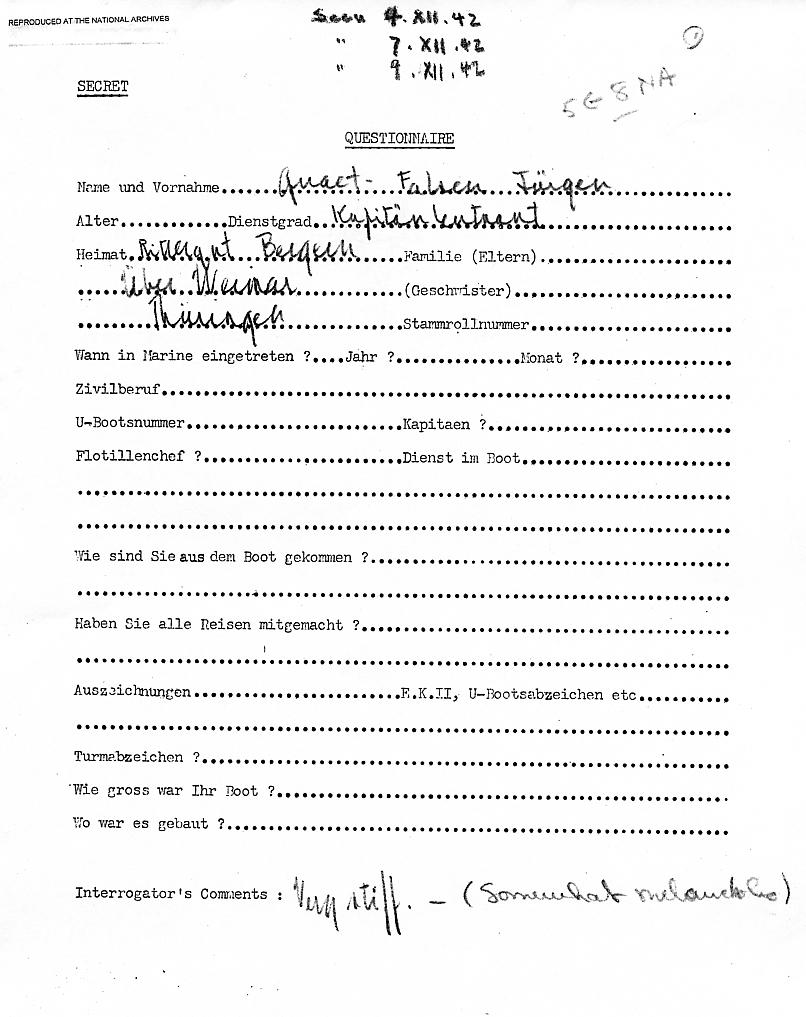 REPRODUCED AT THE NATIONAL ARCHIVES
Seen 4.XII.42
" 7.XII.42
" 9.XII.42
1
SECRET
5 G 8 NA
QUESTIONNAIRE
Name und Vornahme.......Quaet-Falsen Jürgen
Alter.............Dienstgrad..Kapitänleutnant
Heimat.Rittergut Bergern......Familie (Eltern)
über Weimar.............(Geschwister)
Thüringen..............Stammrollnummer
Wann in Marine eingetreten ?....Jahr ?...............Monat ?
Zivilberuf
U-Bootsnummer..........................Kapitaen ?
Flotillenchef ?........................Dienst im Boot
Wie sind Sie aus dem Boot gekommen ?
Haben Sie alle Reisen mitgemacht ?
Auszeichnungen.........................E.K.II, U-Bootsabzeichen etc
Turmabzeichen ?
Wie gross war Ihr Boot ?
Wo war es gebaut ?
Interrogator's Comments : Very stiff. — (Somewhat melancholic)